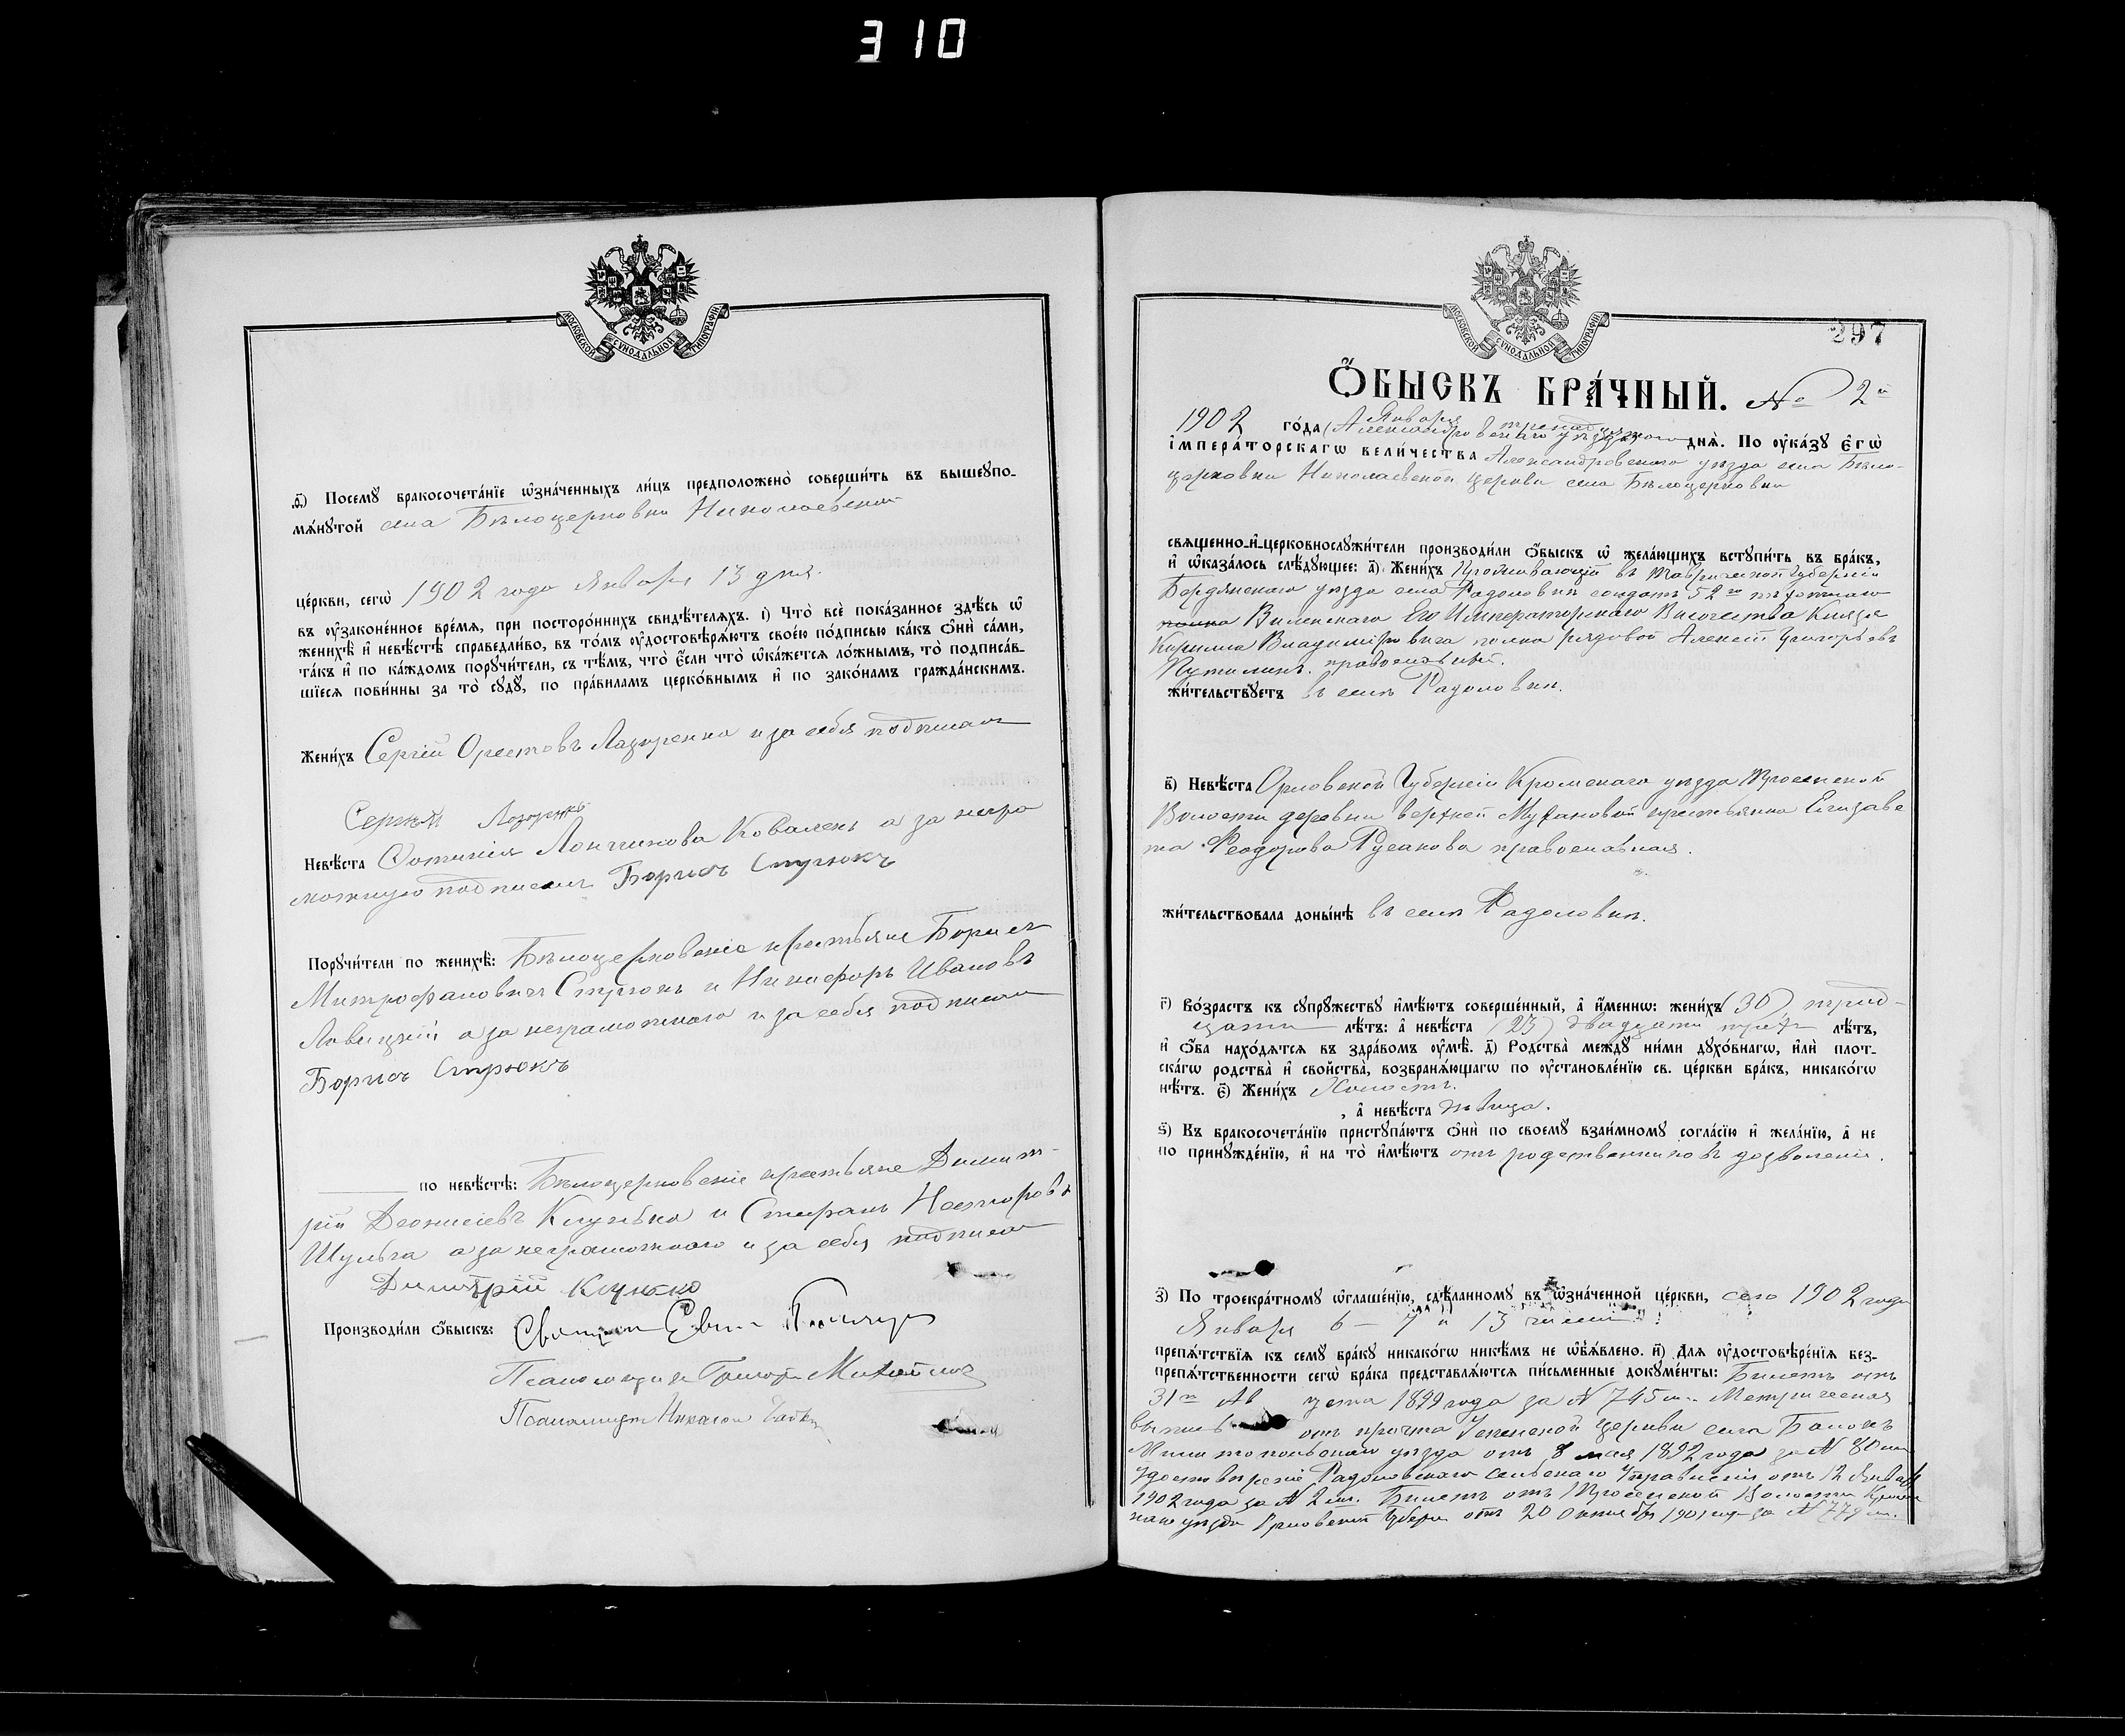 310
МОСКОВСКОЙ СѴНОДАЛЬНОЙ ТИПОГРАФІИ
ѳ҃) Посемꙋ бракосочета́нїе ѡ҆зна́ченныхъ ли́цъ предположено̀ соверши́ть въ вышеꙋпо-
мѧ́нꙋтой села Бѣлоцерковки Николаевской
це́ркви, сегѡ̀ 1902 года Января 13 дня.
въ ᲂу҆зако́ненное вре́мѧ, при посторо́ннихъ свидѣ́телѧхъ. і҃) Что̀ всѐ пока́занное здѣ́сь ѡ҆
женихѣ̀ и҆ невѣ́стѣ справедли́во, въ то́мъ ᲂу҆достовѣрѧ́ютъ свое́ю по́дписью ка́къ ѻ҆нѝ са́ми,
та́къ и҆ по ка́ждомъ порꙋчи́тели, съ тѣ́мъ, что̀ є҆́сли что̀ ѡ҆ка́жетсѧ ло́жнымъ, то̀ подписа́в-
шїесѧ пови́нны за то̀ сꙋдꙋ̀, по пра́виламъ церко́внымъ и҆ по зако́намъ гражда́нскимъ.
Жени́хъ Сергій Орестовъ Лазоренко и за себя подписалъ
Сергѣй Лозоренко
Невѣ́ста Фотинія Лонгинова Коваленъ а за негра
мотную подписалъ Борисъ Стрюкъ
Порꙋчи́тели по женихѣ̀: Бѣлоцерковскіе крестьяне Борисъ
Митрофановичъ Стрюкъ и Никифоръ Ивановъ
Ловицкій а за неграмотнаго и за себя подписалъ
Борисъ Стрюкъ
по невѣ́стѣ: Бѣлоцерковскіе крестьяне Димит-
рій Деонисіевъ Клунько и Стефанъ Несторовъ
Шульга а за неграмотнаго и за себя подписалъ
Димитрій Клунько
Производи́ли ѻ҆́быскъ: Священ Евѳ
Псаломщикъ Григорій Михайлов
Псаломщикъ Николай
МОСКОВСКОЙ СѴНОДАЛЬНОЙ ТИПОГРАФІИ
297
Ѻ҆́быскъ бра́чный. № 2й
Января тринадцятого
1902 го́да (Александровскаго уѣзда) днѧ̀. По ᲂу҆ка́зꙋ є҆гѡ̀
і҆мпера́торскагѡ вели́чества Александровскаго уѣзда села Бѣло-
церковки Николаевской церкви села Бѣлоцерковки
свѧще́нно-и҆-церковнослꙋжи́тели производи́ли ѻ҆́быскъ ѡ҆ жела́ющихъ встꙋпи́ть въ бра́къ,
и҆ ѡ҆каза́лось слѣ́дꙋющее: а҃) Жени́хъ Проживающій въ Таврической губерніи
Бердянскаго уѣзда села Радоловки солдатъ 52го пѣхотнаго
полка Виленскаго Его Императорскаго Высочества Князя
Кирилла Владиміровича полка рядовой Алексѣй Григорьевъ
Путилинъ. православный.
жи́тельствꙋетъ въ селѣ Радоловки.
в҃) Невѣ́ста Орловской Губерніи Кромскаго уѣзда Троснской
Волости деревни верхней Мухановой крестьянка Елизаве
та Феодорова Русанова православная.
жи́тельствовала доны́нѣ въ селѣ Радоловки.
г҃) Во́зрастъ къ сꙋпрꙋ́жествꙋ и҆мѣ́ютъ соверше́нный, а҆ и҆́менно: жени́хъ (30) трид-
цати лѣ́тъ: а҆ невѣ́ста (23) двадцати трехъ лѣ́тъ,
и҆ ѻ҆́ба нахо́дѧтсѧ въ здра́вомъ ᲂу҆мѣ̀. д҃) Родства̀ междꙋ̀ ни́ми дꙋхо́внагѡ, и҆лѝ плот-
ска́гѡ родства̀ и҆ сво́йства, возбранѧ́ющагѡ по ᲂу҆становле́нїю св. це́ркви бра́къ, никако́гѡ
нѣ́тъ. є҃) Жени́хъ Холостъ.
, а҆ невѣ́ста дѣвица.
ѕ҃) Къ бракосочета́нїю пристꙋпа́ютъ ѻ҆нѝ по своемꙋ̀ взаи́мномꙋ согла́сїю и҆ жела́нїю, а҆ не
по принꙋжде́нїю, и҆ на то̀ и҆мѣ́ютъ отъ родственниковъ дозволеніе.
з҃) По троекра́тномꙋ ѡ҆глаше́нїю, сдѣ́ланномꙋ въ ѡ҆зна́ченной це́ркви, сего 1902 года
Января 6 - 7 и 13 числа
препѧ́тствїѧ къ семꙋ̀ бра́кꙋ никако́гѡ никѣ́мъ не ѡ҆б̾ѧ́влено. и҃) Длѧ ᲂу҆достовѣре́нїѧ без-
препѧ́тственности сегѡ̀ бра́ка представлѧ́ютсѧ пи́сьменные докꙋме́нты: Билетъ отъ
31го Ав уста 1899 года за № 745 м. Метрическая
выпись отъ причта Успенской церкви села Балокъ
Мелитопольскаго уѣзда отъ 8 мая 1892 года за № 80 м
Удостовѣреніе Радоловскаго сельскаго Управленія отъ 12 Января
1902 года за № 2 м. Билетъ отъ Троснской Волости Кром
скаго уѣзда Орловской Губерн отъ 20 Октября 1901 года за № 779 м.